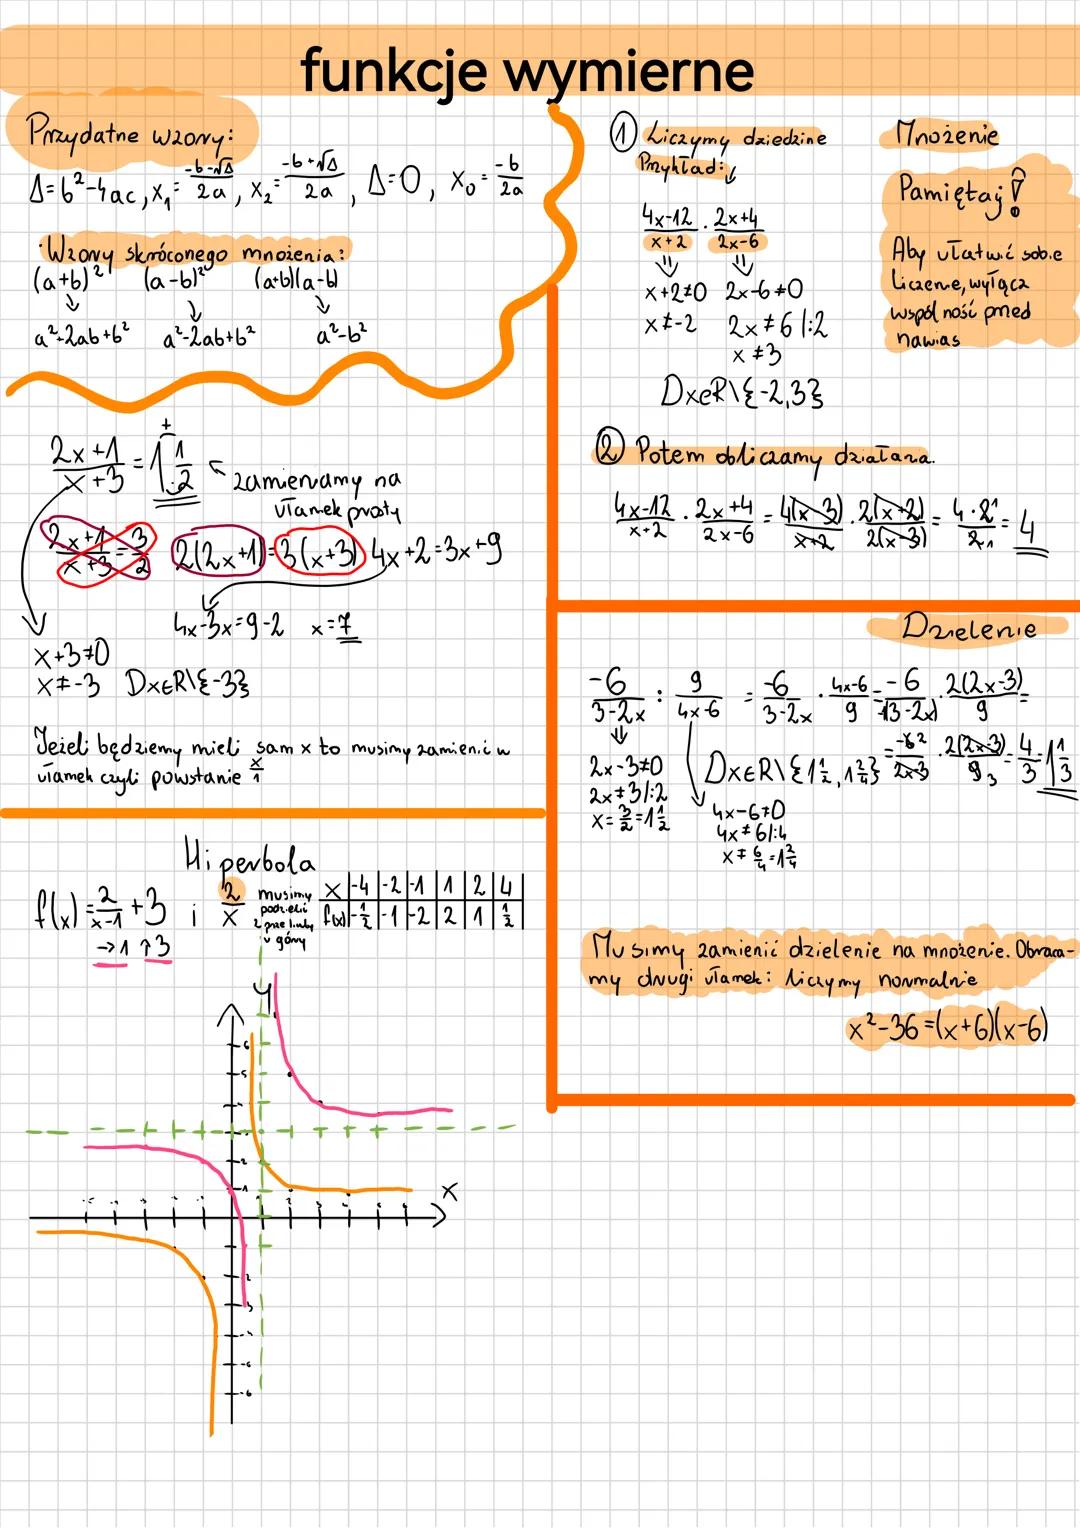 funkcje wymierne
Przydatne wzory:
Δ=b²-4ac, x₁=(-b-√Δ)/2a, x₂=(-b+√Δ)/2a, Δ=0, x₀=-b/2a
·Wzory skróconego mnożenia:
(a+b)² (a-b)² (a+b)(a-b)
a²+2ab+b² a²-2ab+b² a²-b²
(2x+1)/(x+3) = 1 1/2 ← zamieniamy na
ułamek prosty
(2x+1)/(x+3)=3/2 2(2x+1)=3(x+3) 4x+2=3x+9
4x-3x=9-2 x=7
x+3≠0
x≠-3 DxєR\{-3}
Jeżeli będziemy mieli sam x to musimy zamienić w
ułamek czyli powstanie x/1
Hiperbola
f(x)=2/(x-1)+3 i 2/x
→1 ↑3
musimy
podzielić
2 prze liczby
u góry
x |-4|-2|-1|1|2|4|
f(x)|-1/2|-1|-2|2|1|1/2|
y
x
① Liczymy dziedzine
Przykład:
(4x-12)/(x+2) · (2x+4)/(2x-6)
x+2≠0 2x-6≠0
x≠-2 2x≠6 /:2
x≠3
DxєR\{-2,3}
Mnożenie
Pamiętaj!
Aby ułatwić sobie
liczenie, wyłącz
wspólność pred
nawias
② Potem obliczamy działana.
(4x-12)/(x+2) · (2x+4)/(2x-6) = 4(x-3)/(x+2) · 2(x+2)/(2(x-3)) = 4·2¹/2₁ = 4
Dzielenie
-6/(3-2x) : 9/(4x-6) = -6/(3-2x) · (4x-6)/9 = -6/-(3-2x) · 2(2x-3)/9 =
= -6²/(2x-3) · 2(2x-3)/9₃ = 4/3 = 1 1/3
2x-3≠0
2x≠3/:2
x=3/2=1 1/2
DxєR\{1 1/2, 1 2/4}
4x-6≠0
4x≠6/:4
x≠6/4=1 2/4
Musimy zamienić dzielenie na mnożenie. Obraca-
my drugi ułamek i liczymy normalnie
x²-36=(x+6)(x-6)